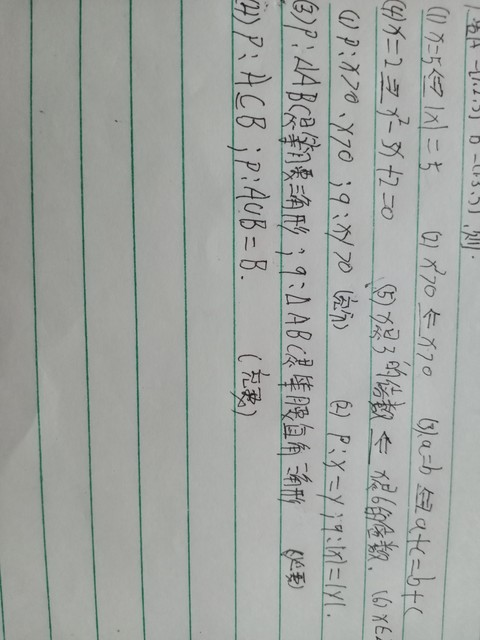 (1) x=5 ⇔ |x|=5 (2) x²>0 ⇐ x>0 (3) a=b ⇔ a+c=b+c
(4) x=2 ⇒ x²-3x+2=0 (5) x是3的倍数 ⇐ x是6的倍数. (6) x∈
(1) P:x>0,y>0;q:xy>0 (充分) (2) P:x=y;q:|x|=|y|.
(3) P:△ABC是等腰三角形;q:△ABC是等腰直角三角形 (必要)
(4) P:A⊆B;p:A∪B=B. (充要)